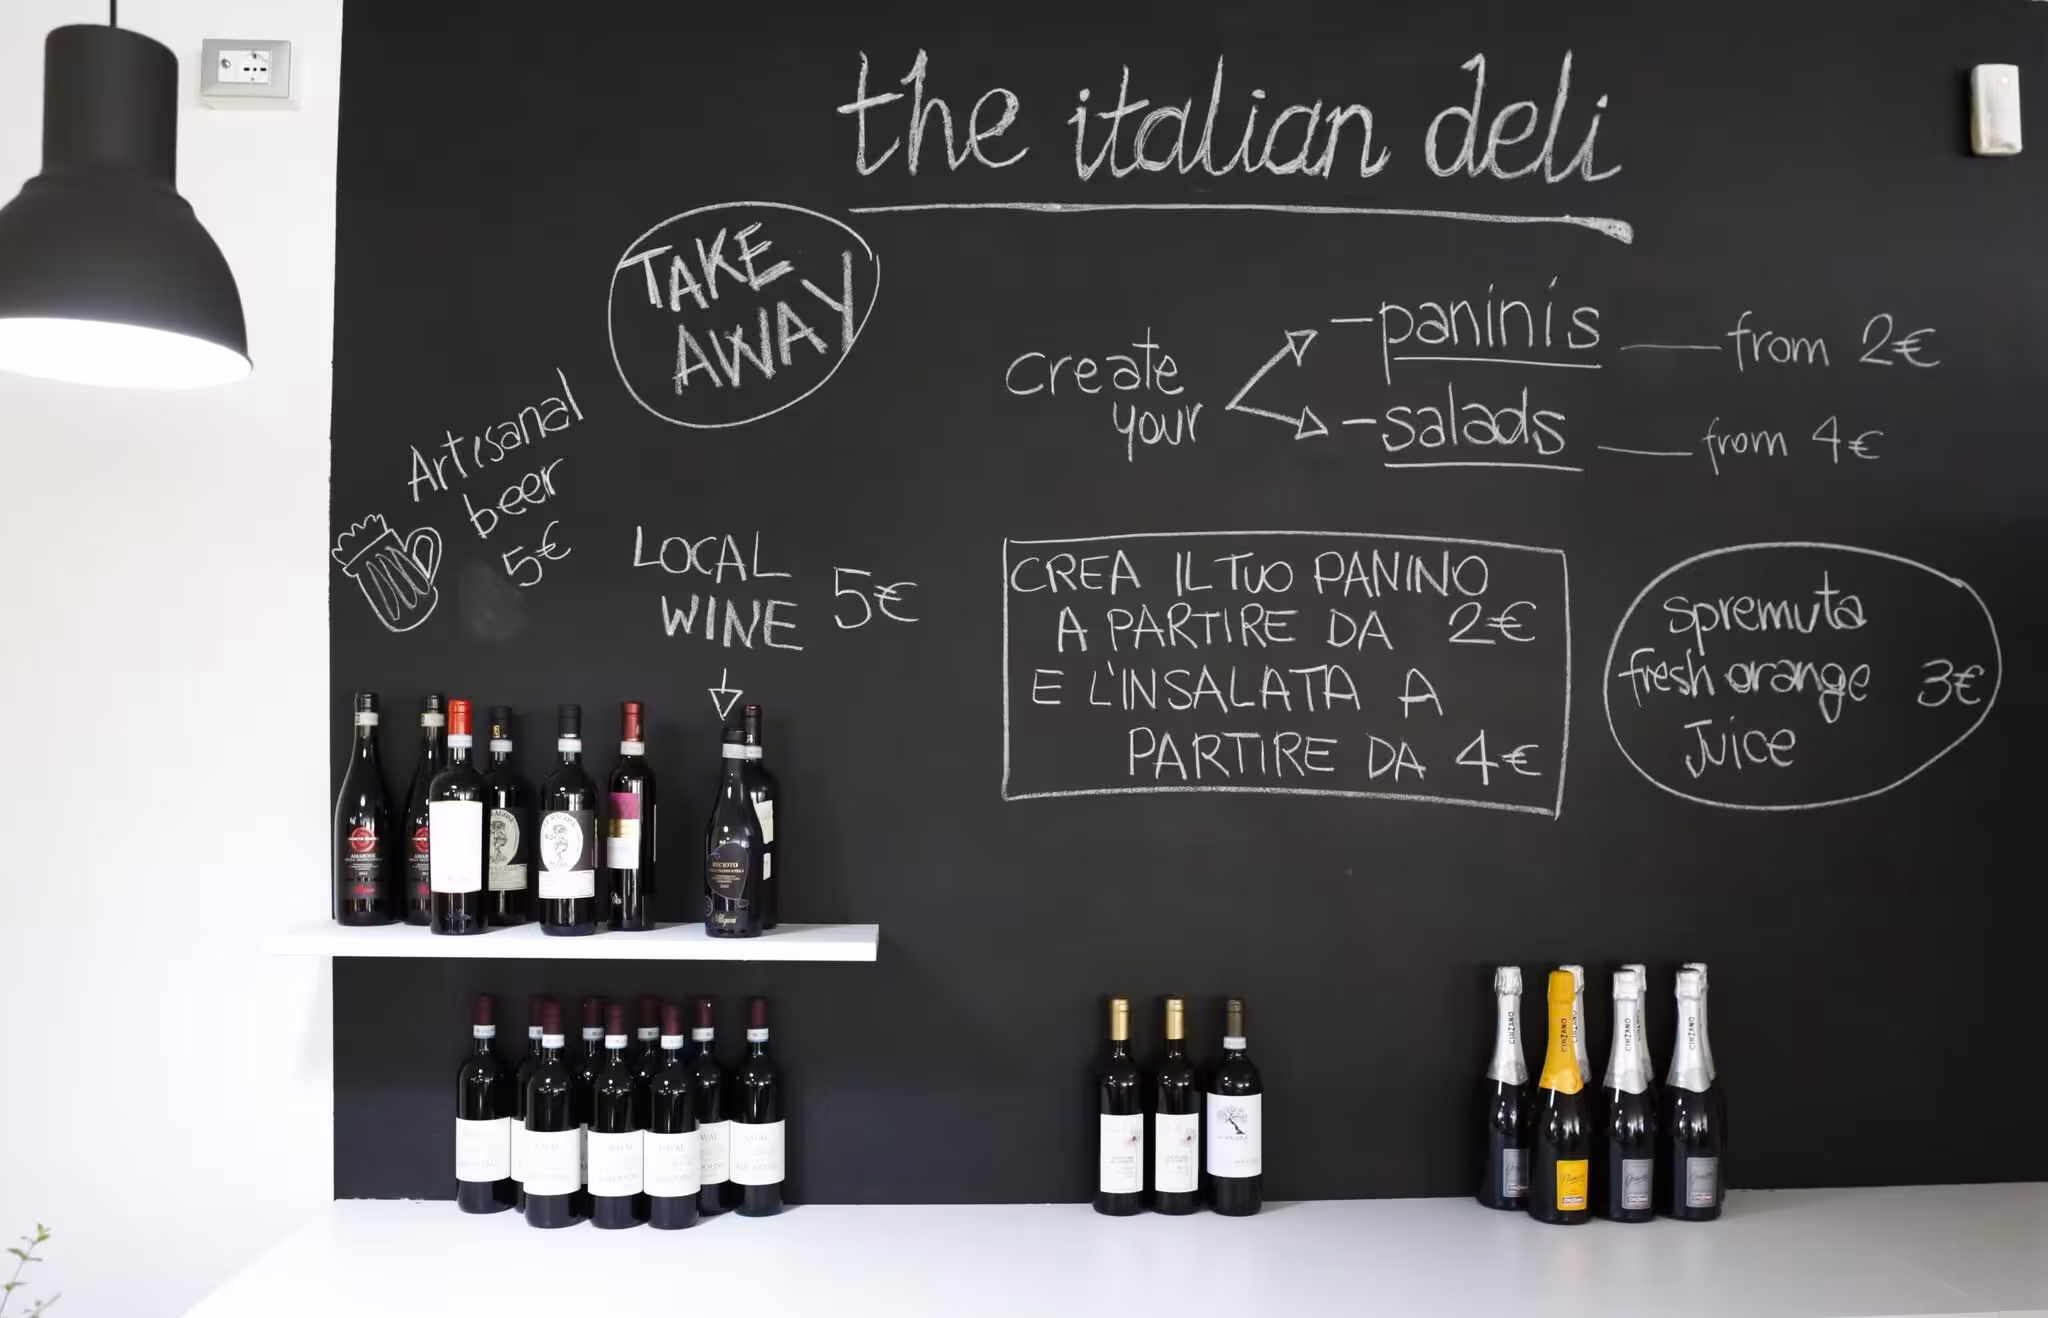 the italian deli
TAKE
AWAY
create
your
- paninis — from 2€
- salads — from 4€
Artisanal
beer
5€
LOCAL
WINE 5€
CREA IL TUO PANINO
A PARTIRE DA 2€
E L'INSALATA A
PARTIRE DA 4€
spremuta
fresh orange 3€
Juice
AMARONE
RECIOTO
Allegrini
CINZANO
CINZANO
CINZANO
CINZANO